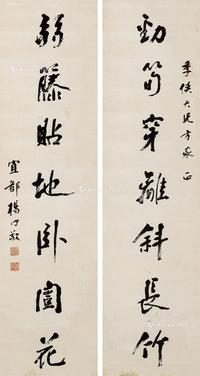 季侯大兄方家正
劲筍穿籬斜長竹
弱籐貼地卧圍花
宜都楊守敬